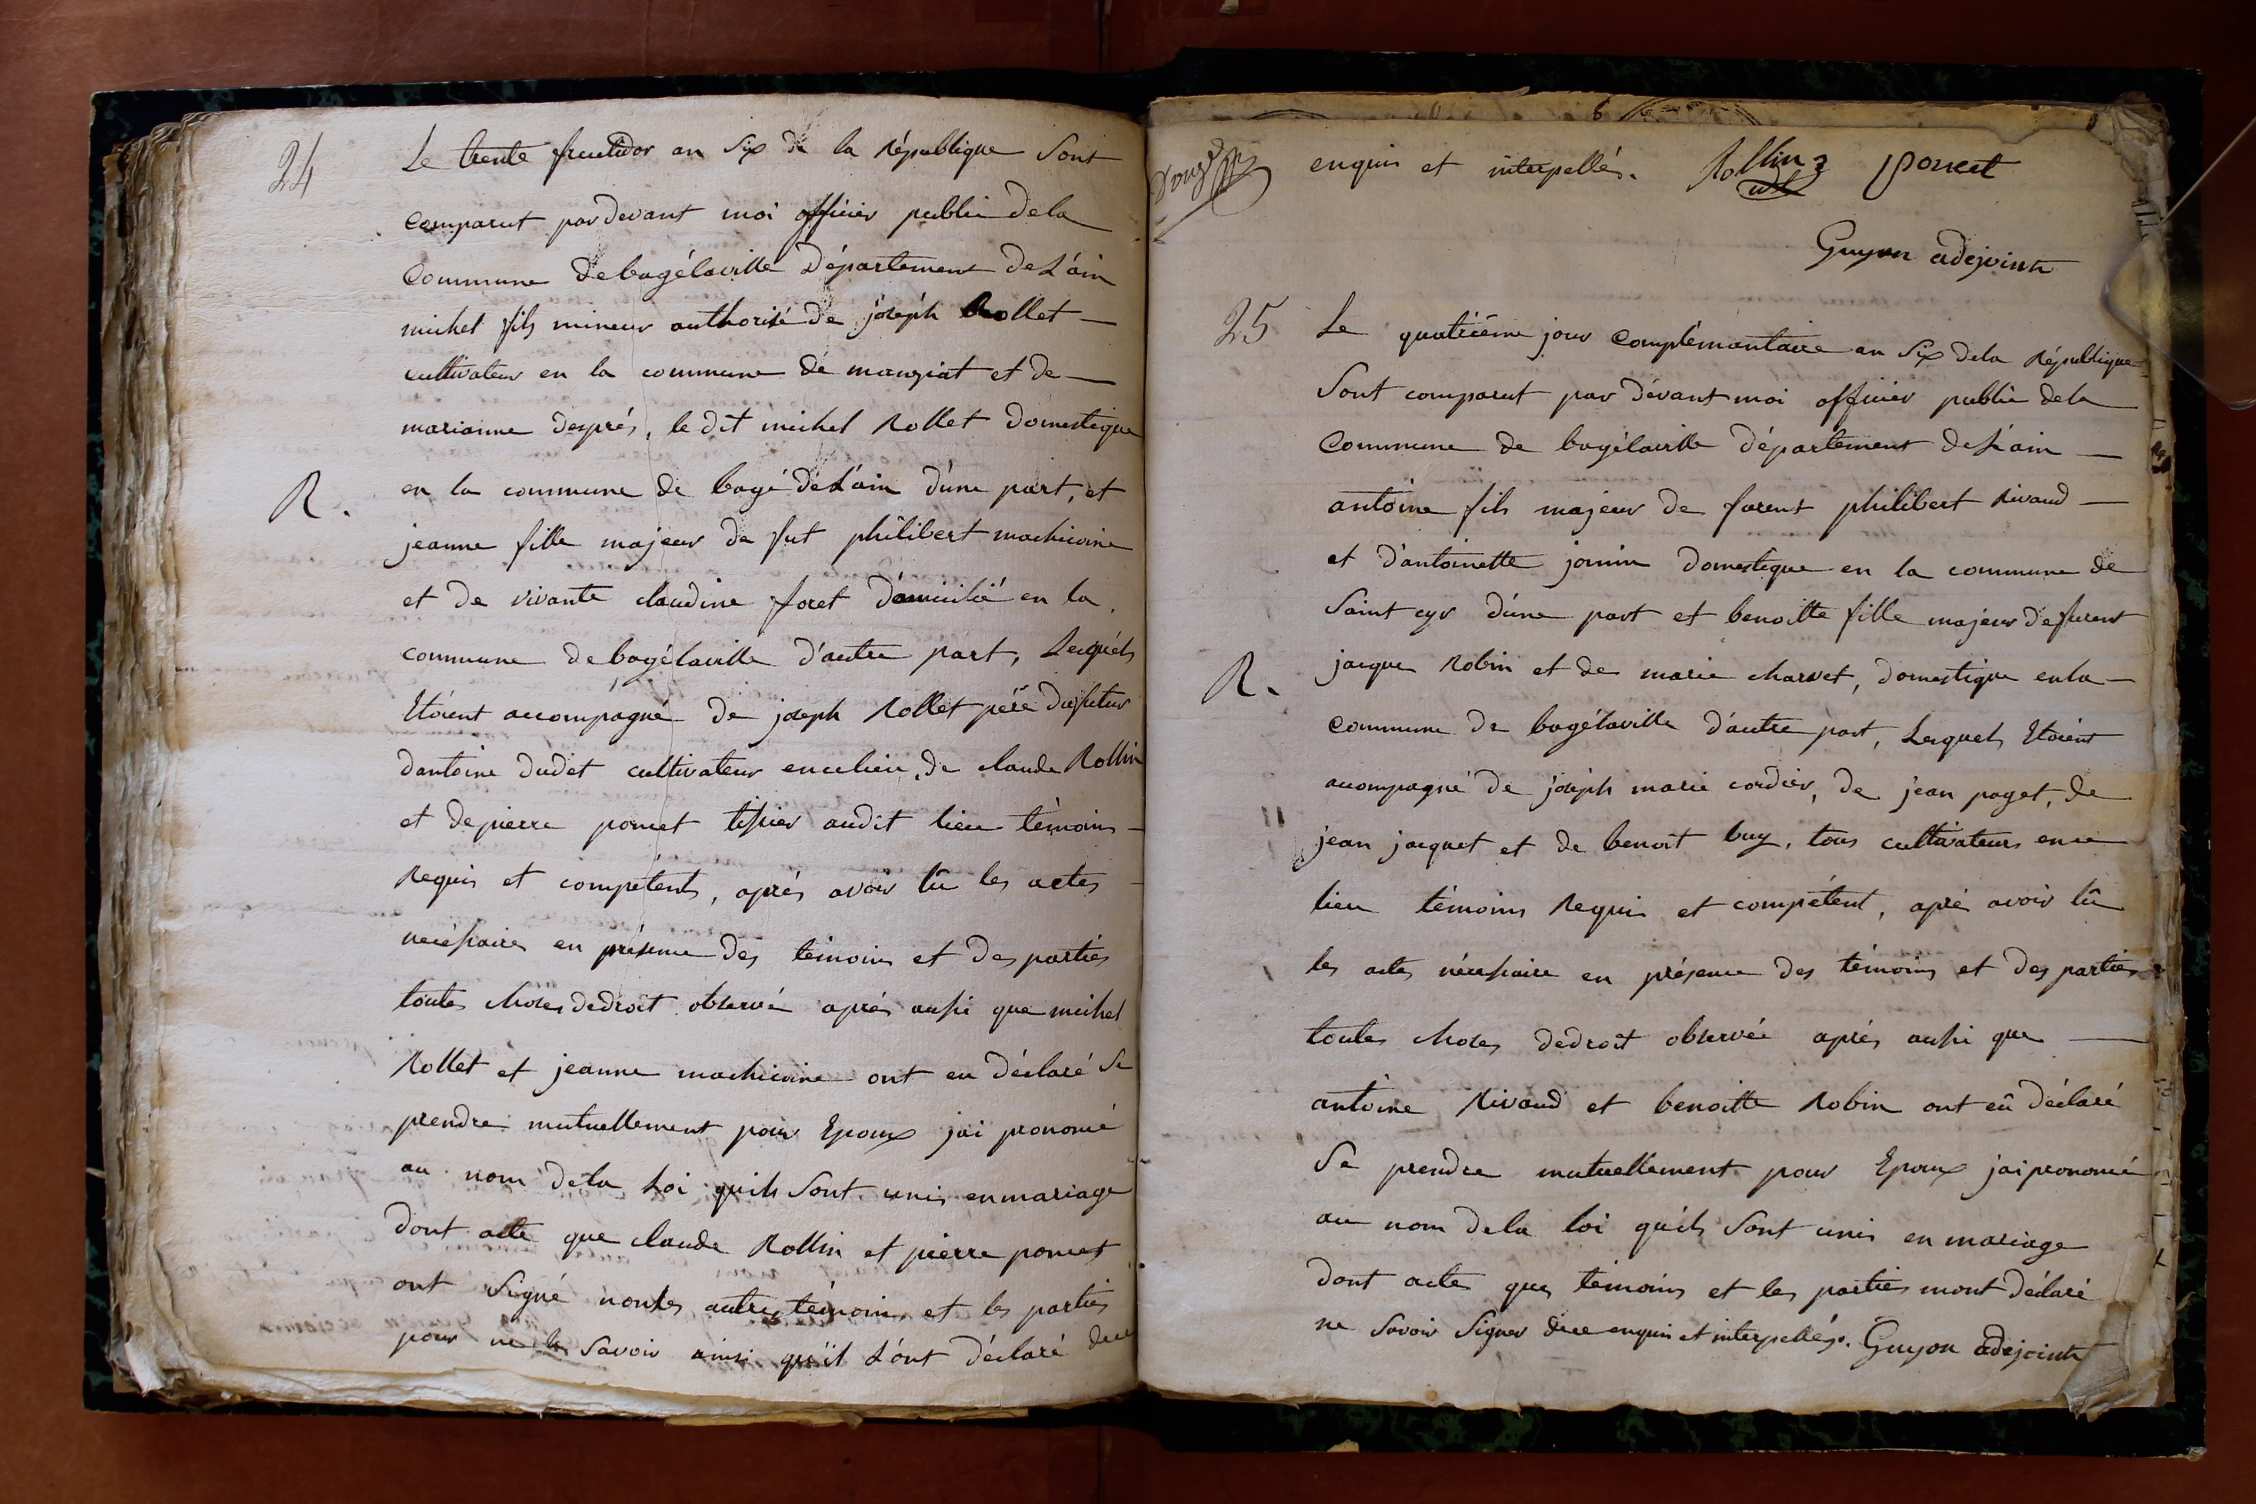 24
Le trente fructidor an Six de la République Sont
comparut pardevant moi officier public dela
Commune debagélaville Département de L'ain
michel fils mineur authorisé de joseph Rollet
cultivateur en la commune de manziat et de
marianne després, le dit michel Rollet Domestique
R.
en la commune de bagé de L'ain d'une part, et
jeanne fille majeur de fut philibert machicoine
et de vivante claudine foret domicilié en la
commune debagélaville d'autre part, Lesquels
Etoient accompagné de joseph Rollet père du futur
dantoine dudet cultivateur encelieu, de claude Rollin
et depierre poncet tissier audit lieu témoins
Requis et compétents, après avoir lû les actes
necéssaires en présence des témoins et des parties
toutes choses dedroit observée après aussi que michel
Rollet et jeanne machicoine ont eu déclaré Se
prendre mutuellement pour Epoux jai prononcé
au nom dela Loi quils Sont unis enmariage
Dont acte que claude Rollin et pierre poncet
ont Signé non les autres témoins et les parties
pour ne le Savoir ainsi qu'il L'ont déclaré de ce
enquis et interpellés. Rollin Poncet
Guyon adejoint
25
Le quatriême jour complémantaire an Six dela République
Sont comparut par dévant moi officier public dela
Commune de bagélaville département de L'ain
antoine fils majeur de furent philibert Rivaud
et d'antoinette janin domestique en la commune de
Saint cyr d'une part et benoitte fille majeur defurent
R.
jacque Robin et de marie charvet, domestique enla
commune de bagélaville d'autre part, Lesquels Etoient
acompagné de joseph marie cordier, de jean paget, de
jean jacquet et de benoit buy, tous cultivateurs ence
lieu témoins Requis et compétent, aprè avoir lû
les actes nécessaire en présence des témoins et des parties
toutes choses dedroit observée après aussi que
antoine Rivaud et benoitte Robin ont eû déclaré
Se prendre mutuellement pour Epoux jai prononcé
au nom dela loi qu'ils Sont unis en mariage
dont acte que témoins et les parties mont déclaré
ne Savoir Signer de ce enquis et interpellés. Guyon adejoint